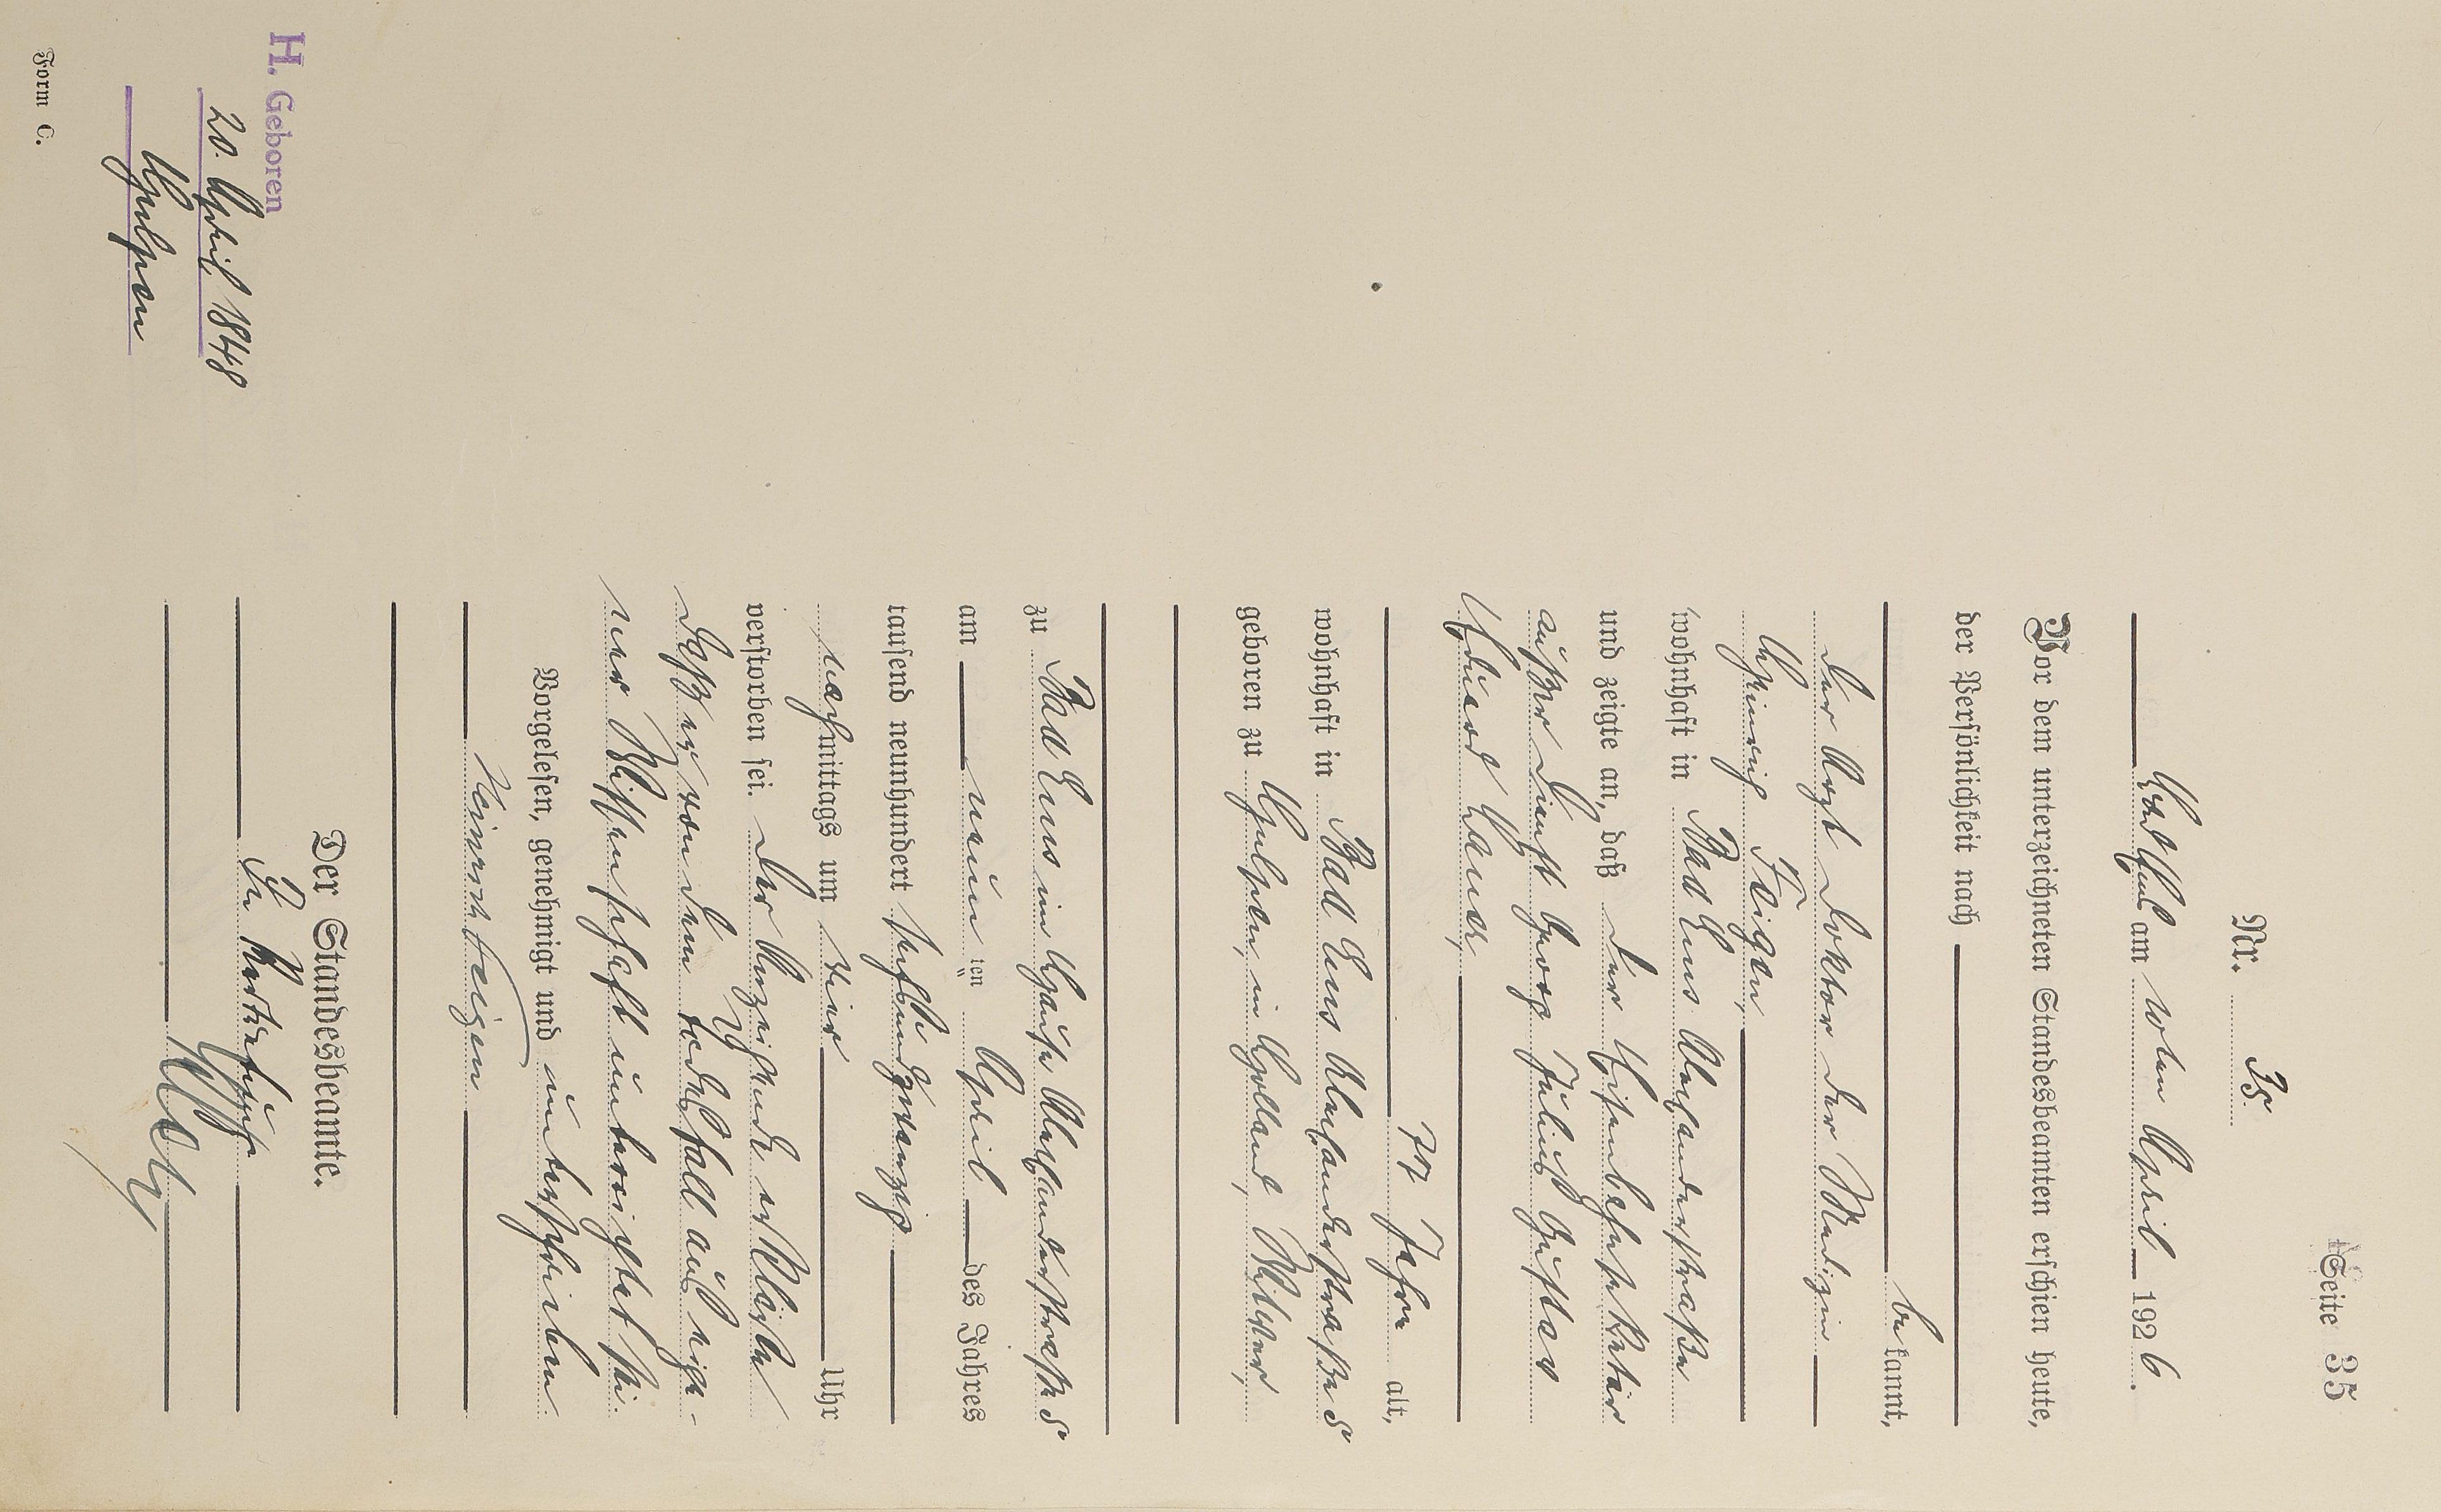 Seite 35
Nr. 35.
Bad Ems am 10ten April 1926.
Vor dem unterzeichneten Standesbeamten erschien heute,
der Persönlichkeit nach
bekannt,
der Arzt Doktor der Medizin
Heinrich Feigen,
wohnhaft in Bad Ems Alexanderstraße
und zeigte an, daß der Eisenbahnsekretär
außer Dienst Georg Julius Gustav
Eduard
77 Jahre alt,
wohnhaft in Bad Ems Alexanderstraße 8
geboren zu Gulpen, in Holland,
zu Bad Ems im Hause Alexanderstraße 8
am neunten April des Jahres
tausend neunhundert sechsundzwanzig
nachmittags um vier Uhr
verstorben sei. Der Anzeigende erklärte
daß er von dem Todesfall aus eige-
ner Wissenschaft unterrichtet sei.
Vorgelesen, genehmigt und unterschrieben
Heinrich Feigen
Der Standesbeamte.
In Vertretung
H. Geboren
20. April 1848
Gulpen
Form C.